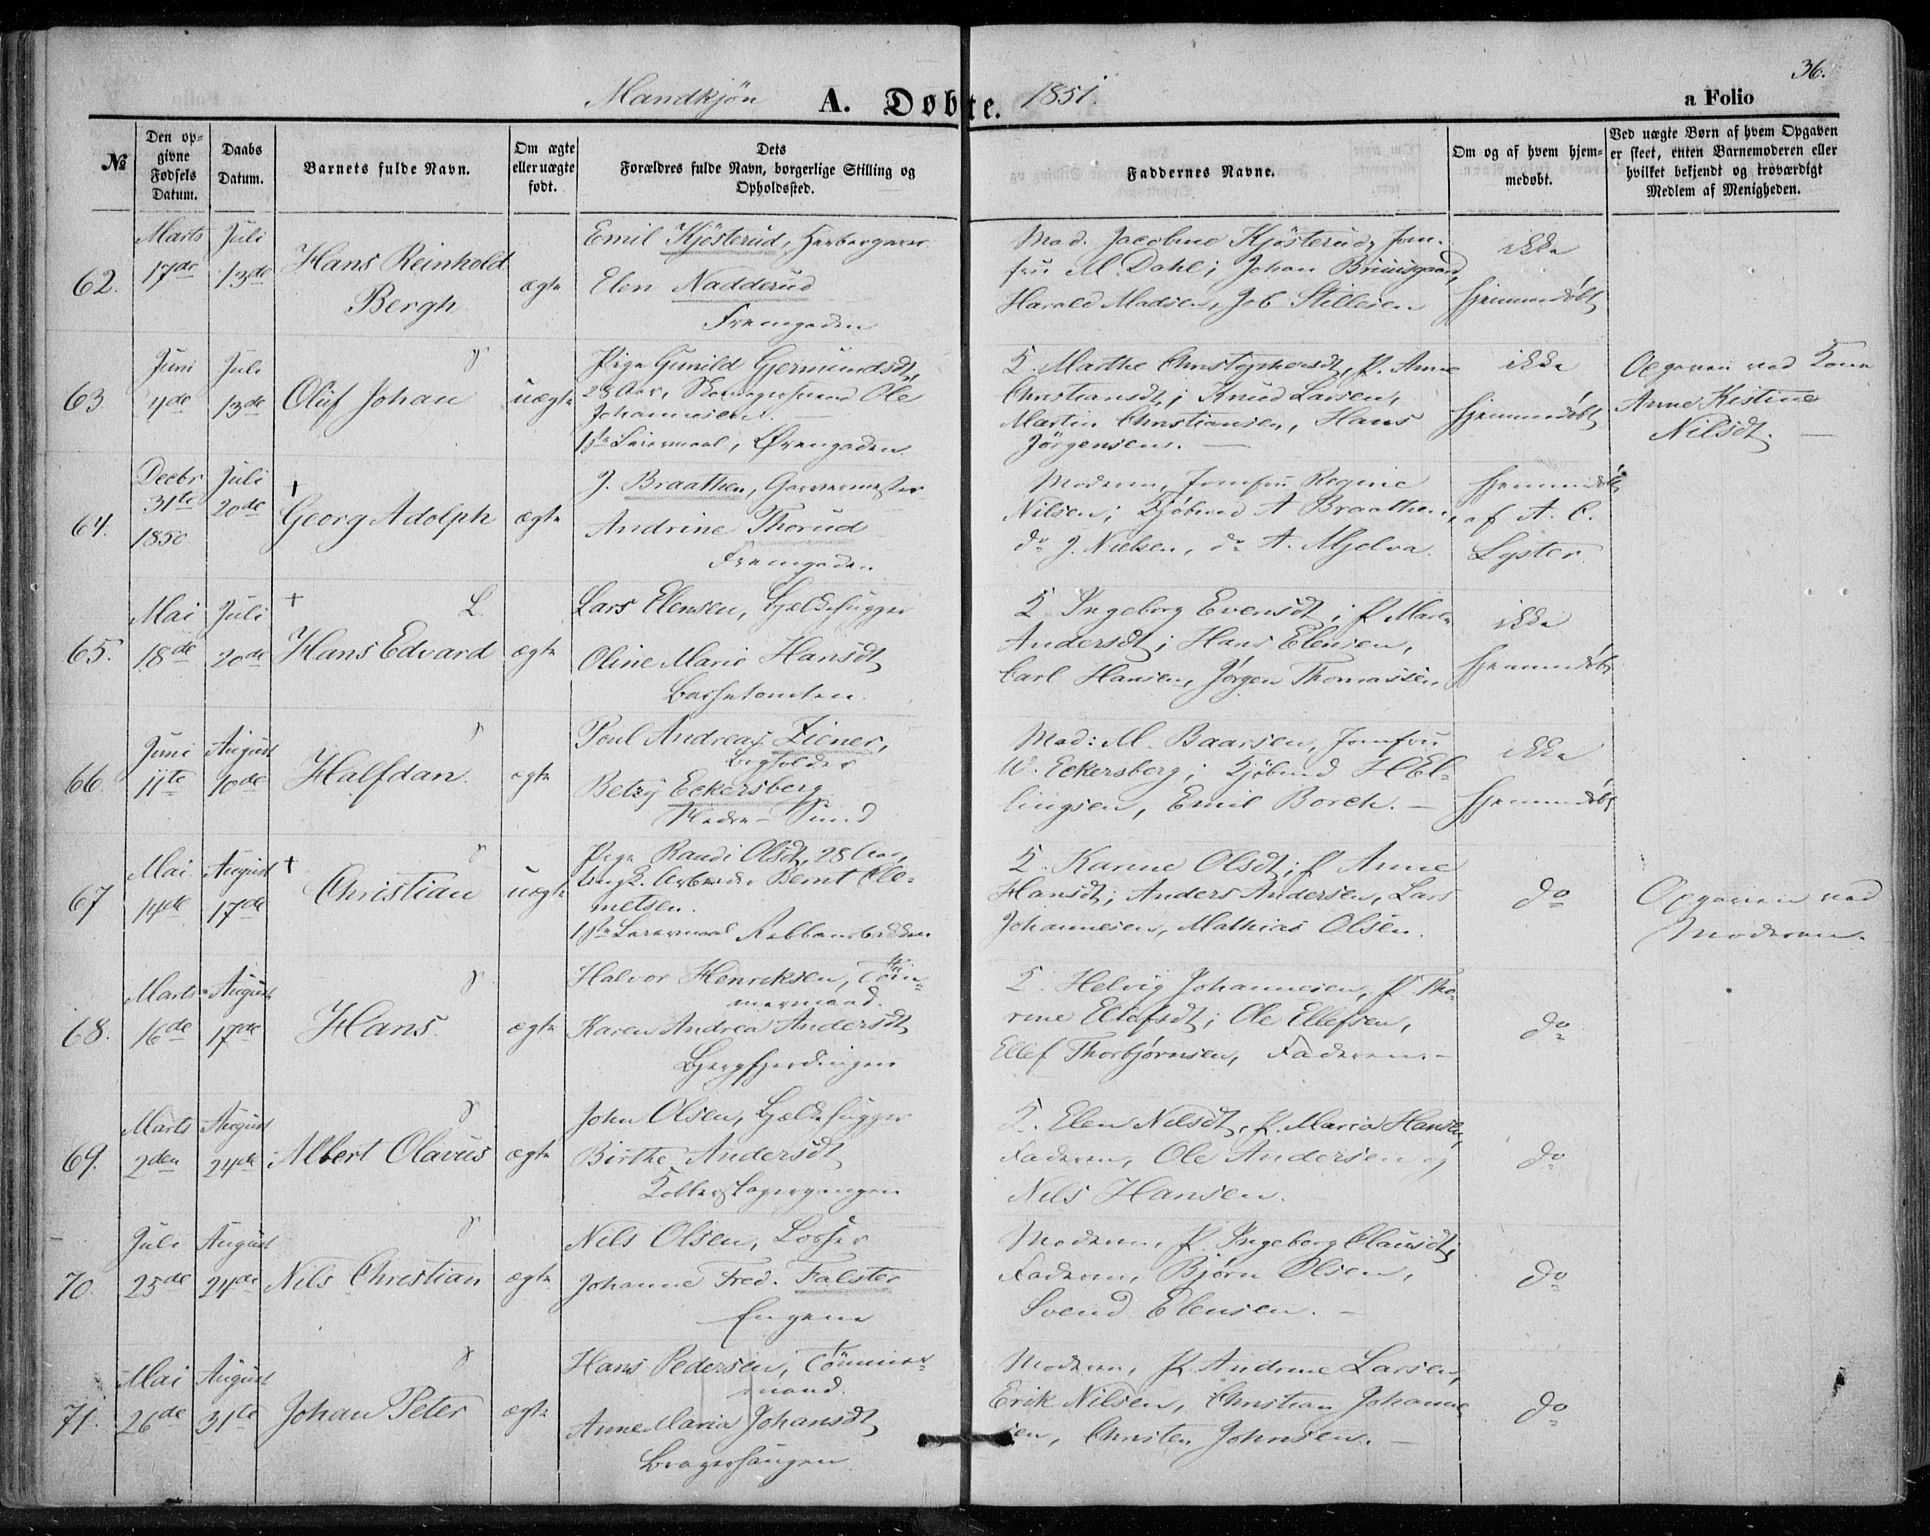 36.
Mandkjön A. Døbte. 1851. a Folio
№
Den op-
givne
Fødsels
Datum.
Daabs
Datum.
Barnets fulde Navn.
Om ægte
eller uægte
født.
Dets
Forældres fulde Navn, borgerlige Stilling og
Opholdssted.
Faddernes Navne.
Om og af hvem hjem-
medøbt.
Ved uægte Børn af hvem Opgaven
er skeet, enten Barnemoderen eller
hvilket bekjendt og troværdigt
Medlem af Menigheden.
62.
Marts
17de
Juli
13de
Hans Reinhold
Bergh
ægte
Emil Kjösterud,
Elen Nadderud
Fremgaden
Mad. Jacobine Kjösterud, Jom-
fru M. Dahl; Johan
Harald Madsen, Job Stillesen
ikke
hjemmedöbt
63
Juni
4de
Juli
13de
Oluf Johan
uægte
Pige Gunild Gjermundsdt,
28 Aar, Ole
Johannesen.
1ste Leiermaal, Örengaden
K. Marthe Christophersdt, P. Anne
Christiansdt; Knud Larsen,
Martin Christiansen, Hans
Jörgensen. —
ikke
hjemmedöbt
Opgaven ved Kone
Anne Kistine
Nilsdt. —
64.
Decbr
31te
1850
Juli
20de
+
Georg Adolph
ægte
J. Braathen, Garvermester
Andrine Thorud
Fremgaden
Moderen, Jomfru Regine
Nilsen; Kjöbmd A Braathen,
do J. Nielsen, do A. Mjelva.
hjemmedöbt
af A. C.
Lyster.
65.
Mai
18de
Juli
20de
+ L.
Hans Edvard
ægte
Lars Elensen,
Oline Marie Hansdt
K. Ingeborg Evensdt; P. Maria
Andersdt; Hans Elensen,
Carl Hansen, Jörgen Thomassen
ikke
hjemmedöbt
66.
Juni
11te
August
10de
Halfdan.
ægte
Poul Andreas Ziener,
Betzy Eckersberg
Sund
Mad: M. Baarsen, Jomfru
W. Eckersberg; Kjöbmd H El-
lingsen, Emil Borch. —
ikke
hjemmedöbt
67
Mai
14de
August
17de
+
Christian
uægte
Pige Randi Olsdt, 28 Aar,
Ungk. Arbeider Bernt Cle-
metsen.
1ste Leiermaal
K. Karine Olsdt; P. Anne
Hansdt; Anders Andersen, Lars
Johannesen, Mathias Olsen.
do
Opgaven ved
Moderen.
68.
Marts
16de
August
17de
Hans.
ægte
Halvor Henriksen, Töm-
mermand.
Karen Andrea Andersdt
Bjergfjerdingen
K. Helvig Johannesen, P. Tho-
rine Ellefsdt; Ole Ellefsen,
Ellef Thorbjörnsen, Faderen. —
do
69.
Marts
2den
August
24de
Albert Olavus
ægte
John Olsen,
Birthe Andersdt
K. Elen Nilsdt, P. Maria Hansen,
Faderen, Ole Andersen og
Nils Hansen.
do
70.
Juli
25de
August
24de
Nils Christian
ægte
Nils Olsen, Losser
Johanne Fred. Falster
Engene
Moderen, P. Ingeborg Clausdt,
Faderen, Björn Olsen,
Svend Elensen. —
do
71.
Mai
26de
August
31te
Johan Peter
ægte
Hans Pedersen, Tömmer-
mand.
Anne Maria Johansdt
Moderen, P. Andrine Larsen,
Erik Nilsen, Christian Johanne-
sen, Christen Johnsen. —
do